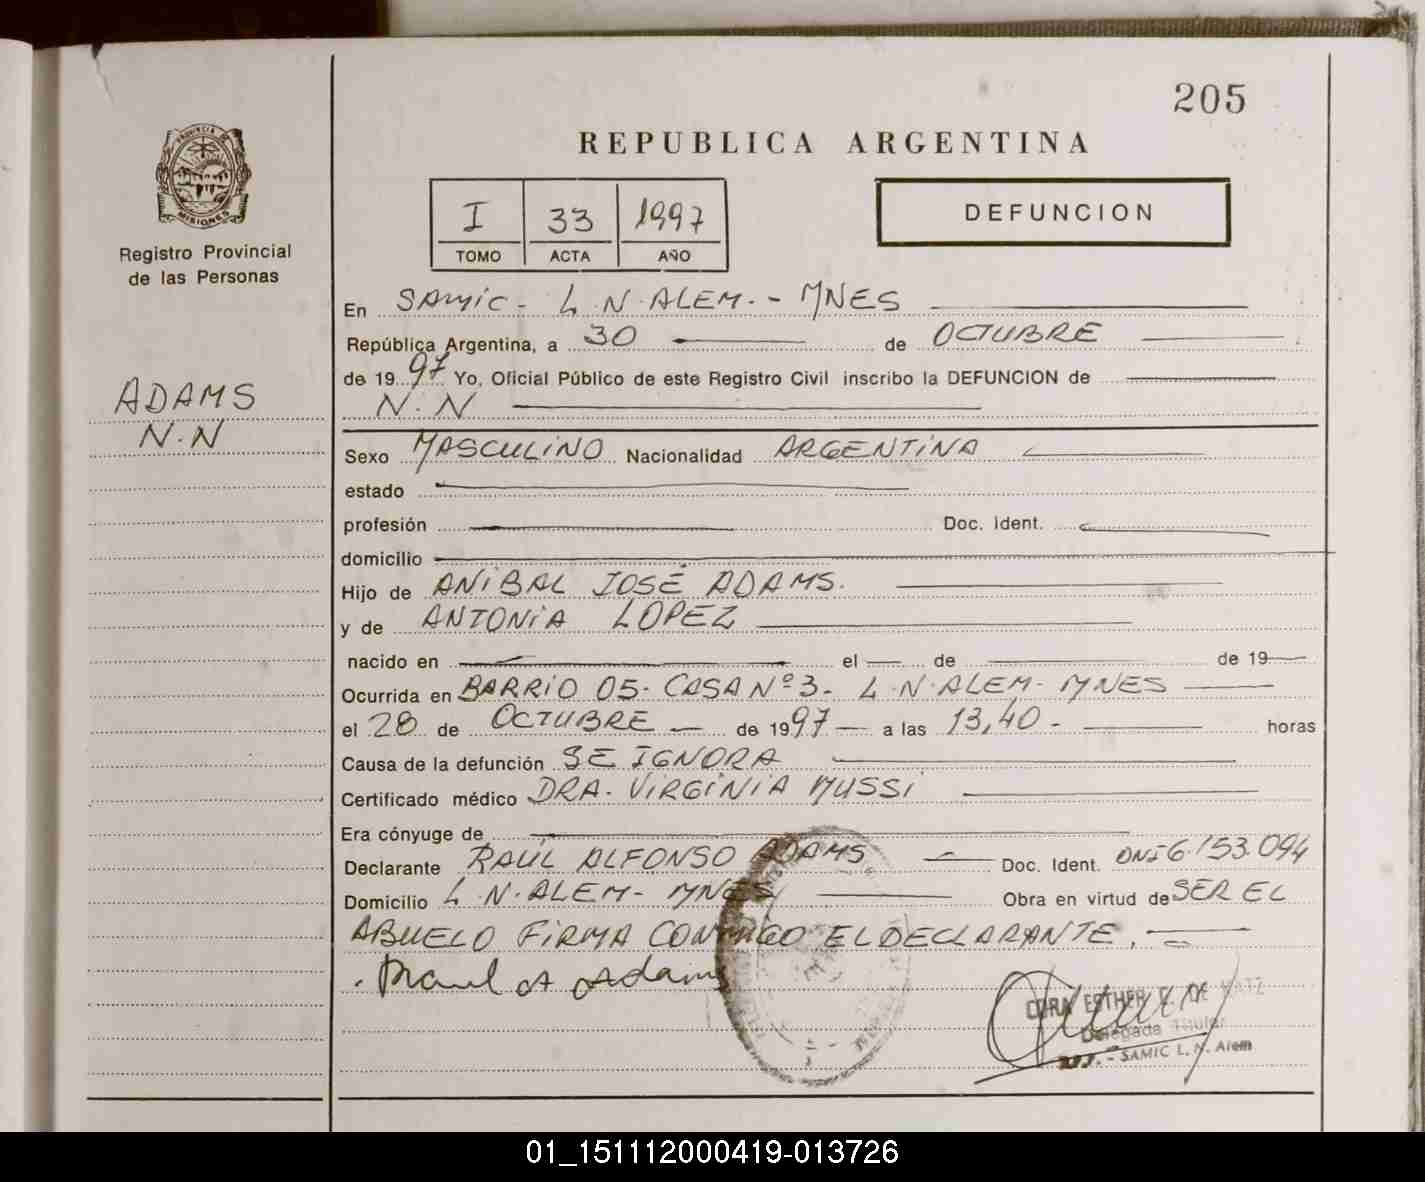 205
REPUBLICA ARGENTINA
PROVINCIA DE
MISIONES
Registro Provincial
de las Personas
I 33 1997
TOMO ACTA AÑO
DEFUNCION
ADAMS
N.N
En SAMIC - L.N.ALEM. - MNES
República Argentina, a 30 de OCTUBRE
de 1997 Yo, Oficial Público de este Registro Civil inscribo la DEFUNCION de
N.N
Sexo MASCULINO Nacionalidad ARGENTINA
estado
profesión Doc. Ident.
domicilio
Hijo de ANIBAL JOSÉ ADAMS.
y de ANTONIA LOPEZ
nacido en el de de 19
Ocurrida en BARRIO 05- CASA Nº 3- L.N.ALEM- MNES
el 28 de OCTUBRE de 1997 a las 13,40 - horas
Causa de la defunción SE IGNORA
Certificado médico DRA. VIRGINIA MUSSI
Era cónyuge de
Declarante RAUL ALFONSO ADAMS Doc. Ident. DNI 6.153.094
Domicilio L.N.ALEM- MNES Obra en virtud de SER EL
ABUELO FIRMA CONMIGO EL DECLARANTE.
Raul A Adams
ESTHER DE
Delegada Titular
SAMIC L. N. Alem
01_151112000419-013726